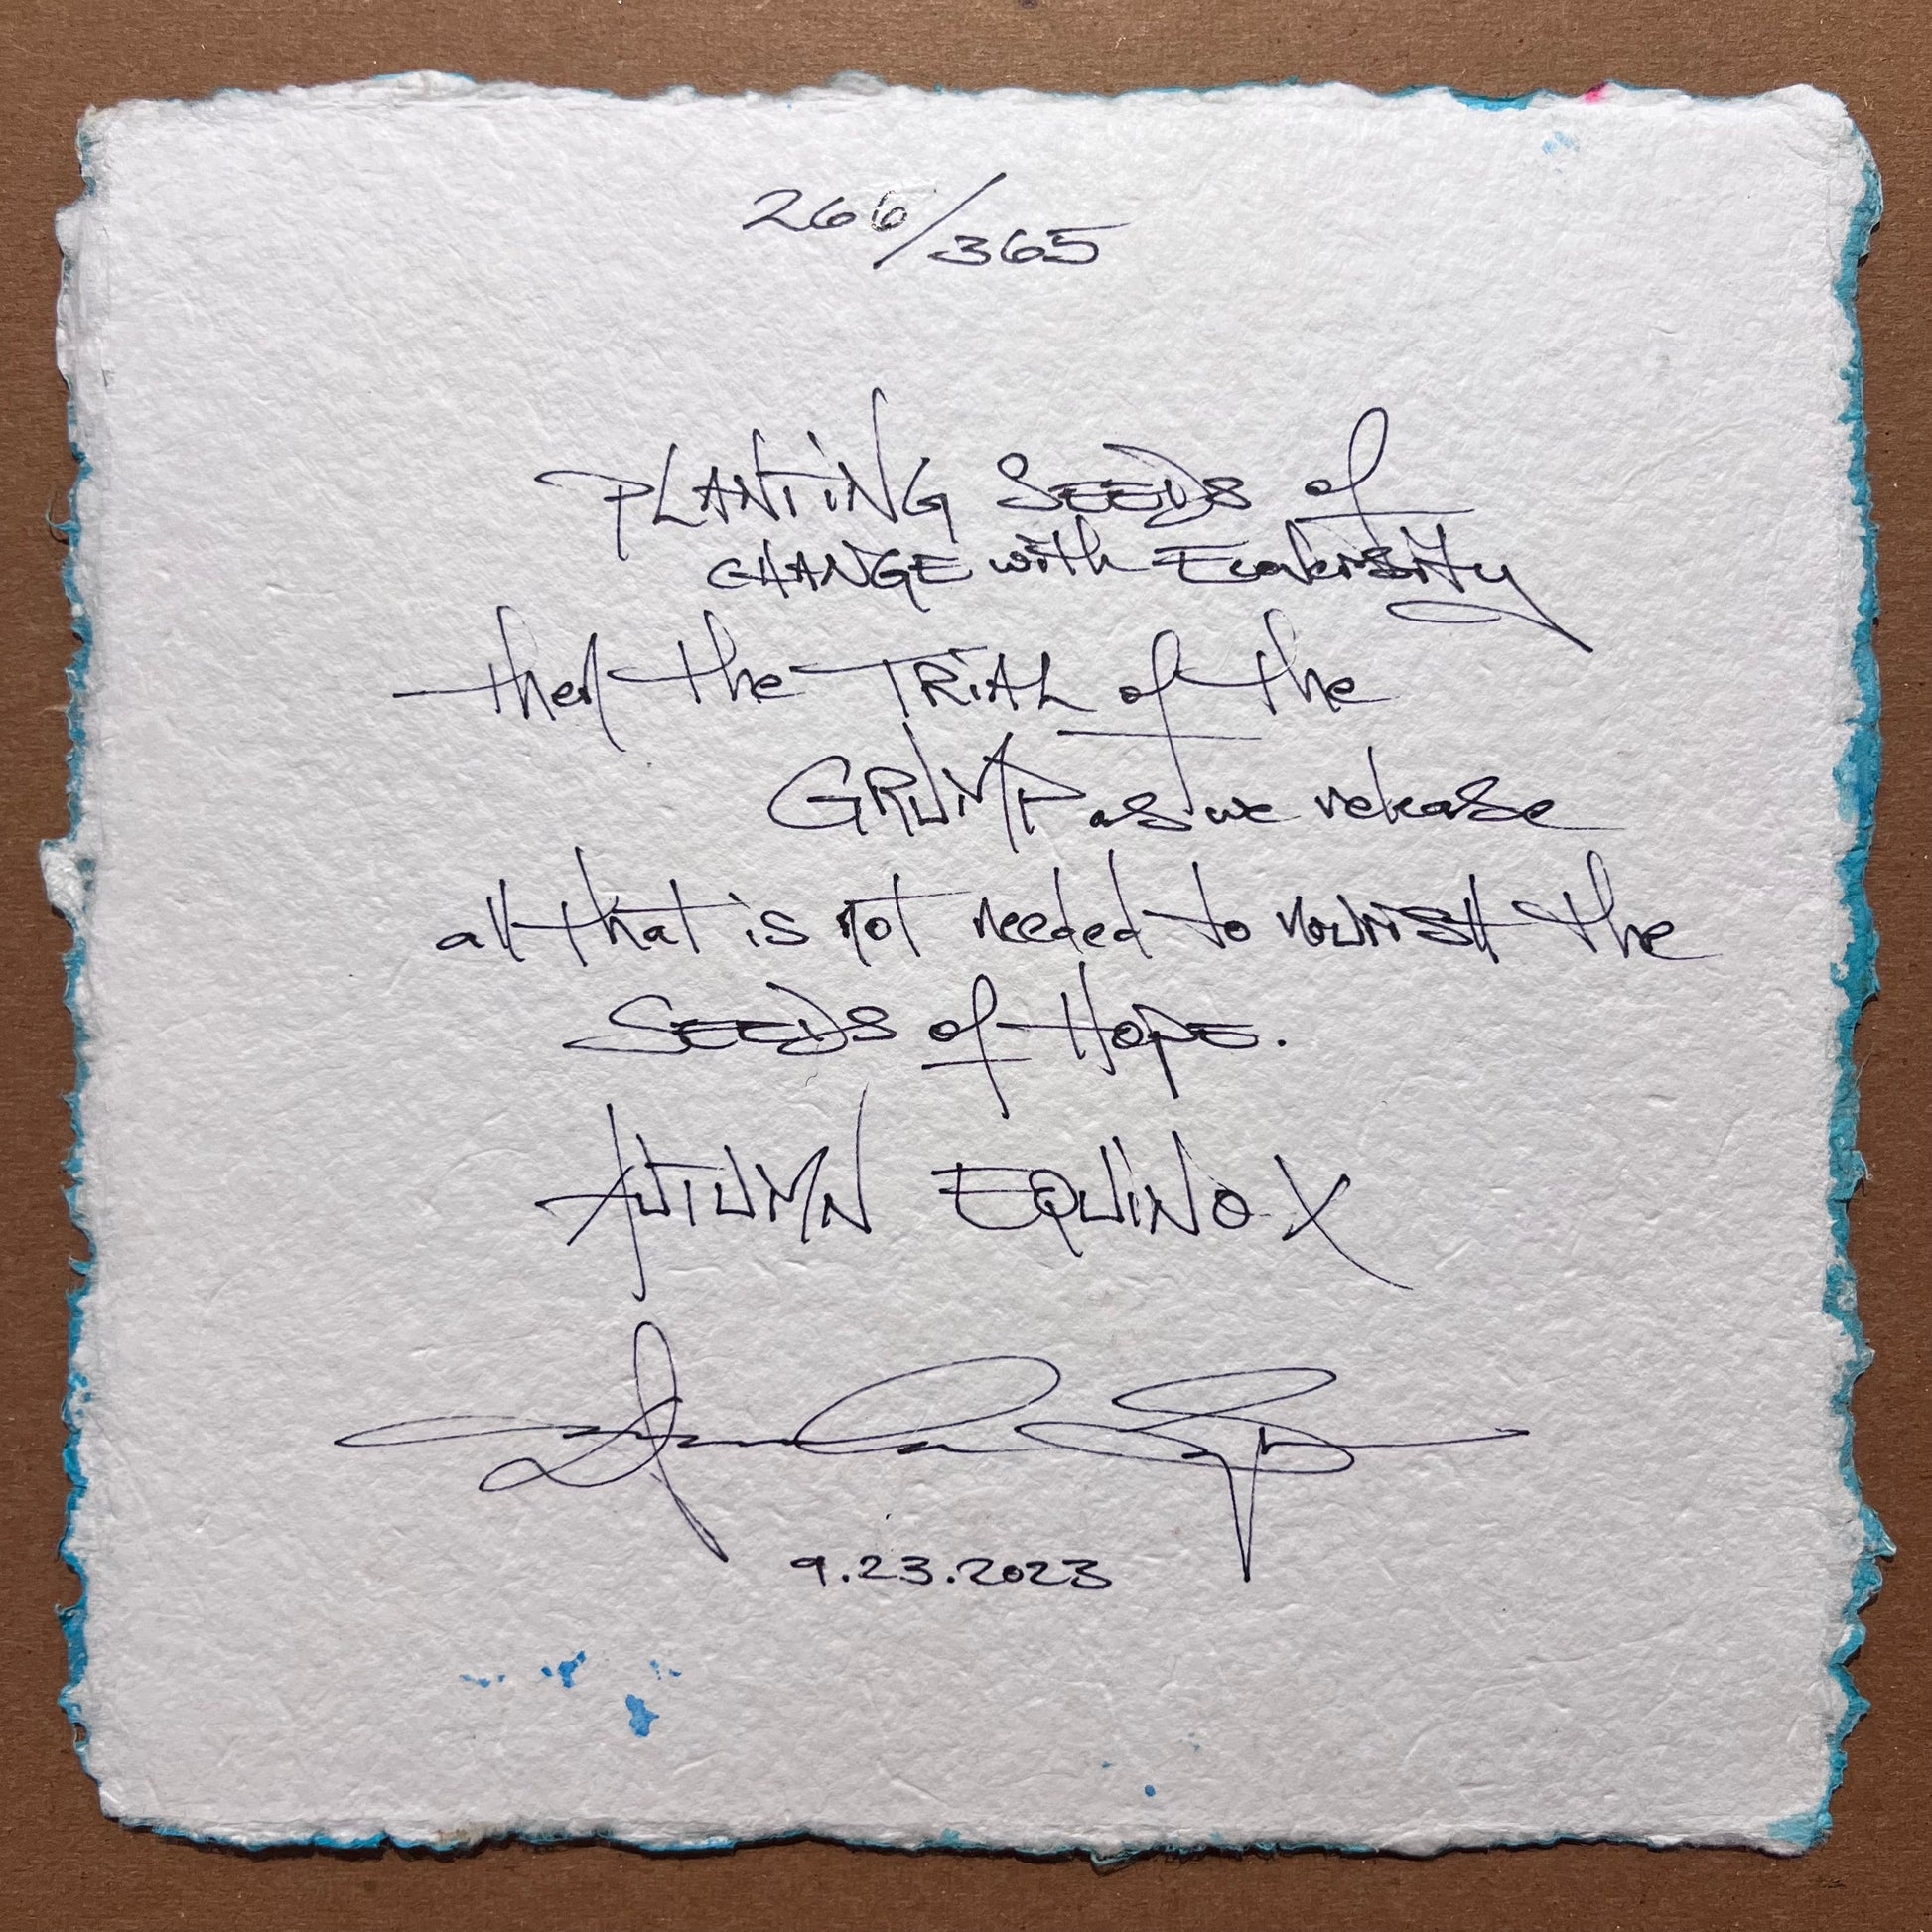 266/365
PLANTING SEEDS of
CHANGE with Ecoversity
then the TRiAL of the
GRUMP as we release
all that is not needed to nourish the
SEEDS of HOPE.
AUTUMN EQUiNOX
9.23.2023